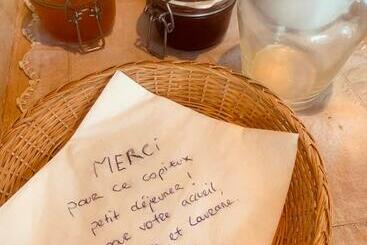 MERCI
pour ce copieux
petit déjeuner !
pour votre accueil,
et Laurane.